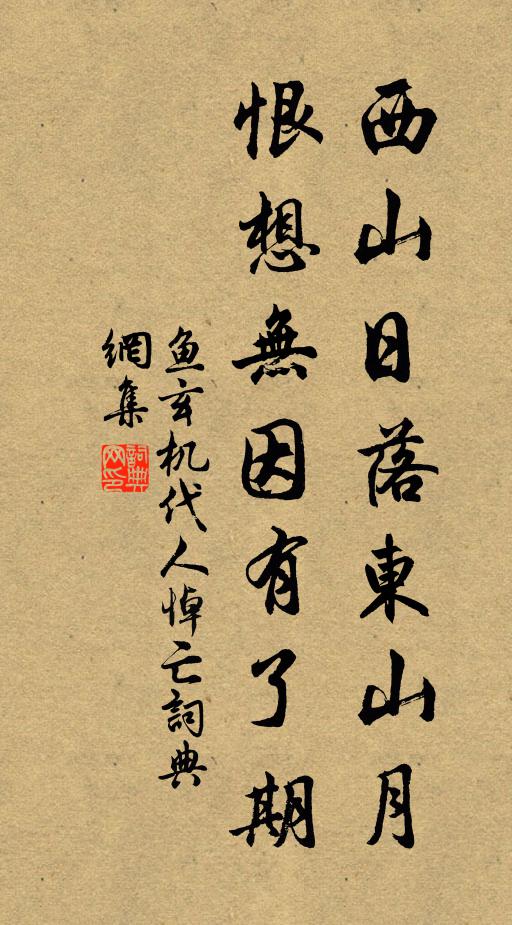 西山日落東山月
恨想無因有了期
鱼玄机代人悼亡詞典
網集
詞典
网印